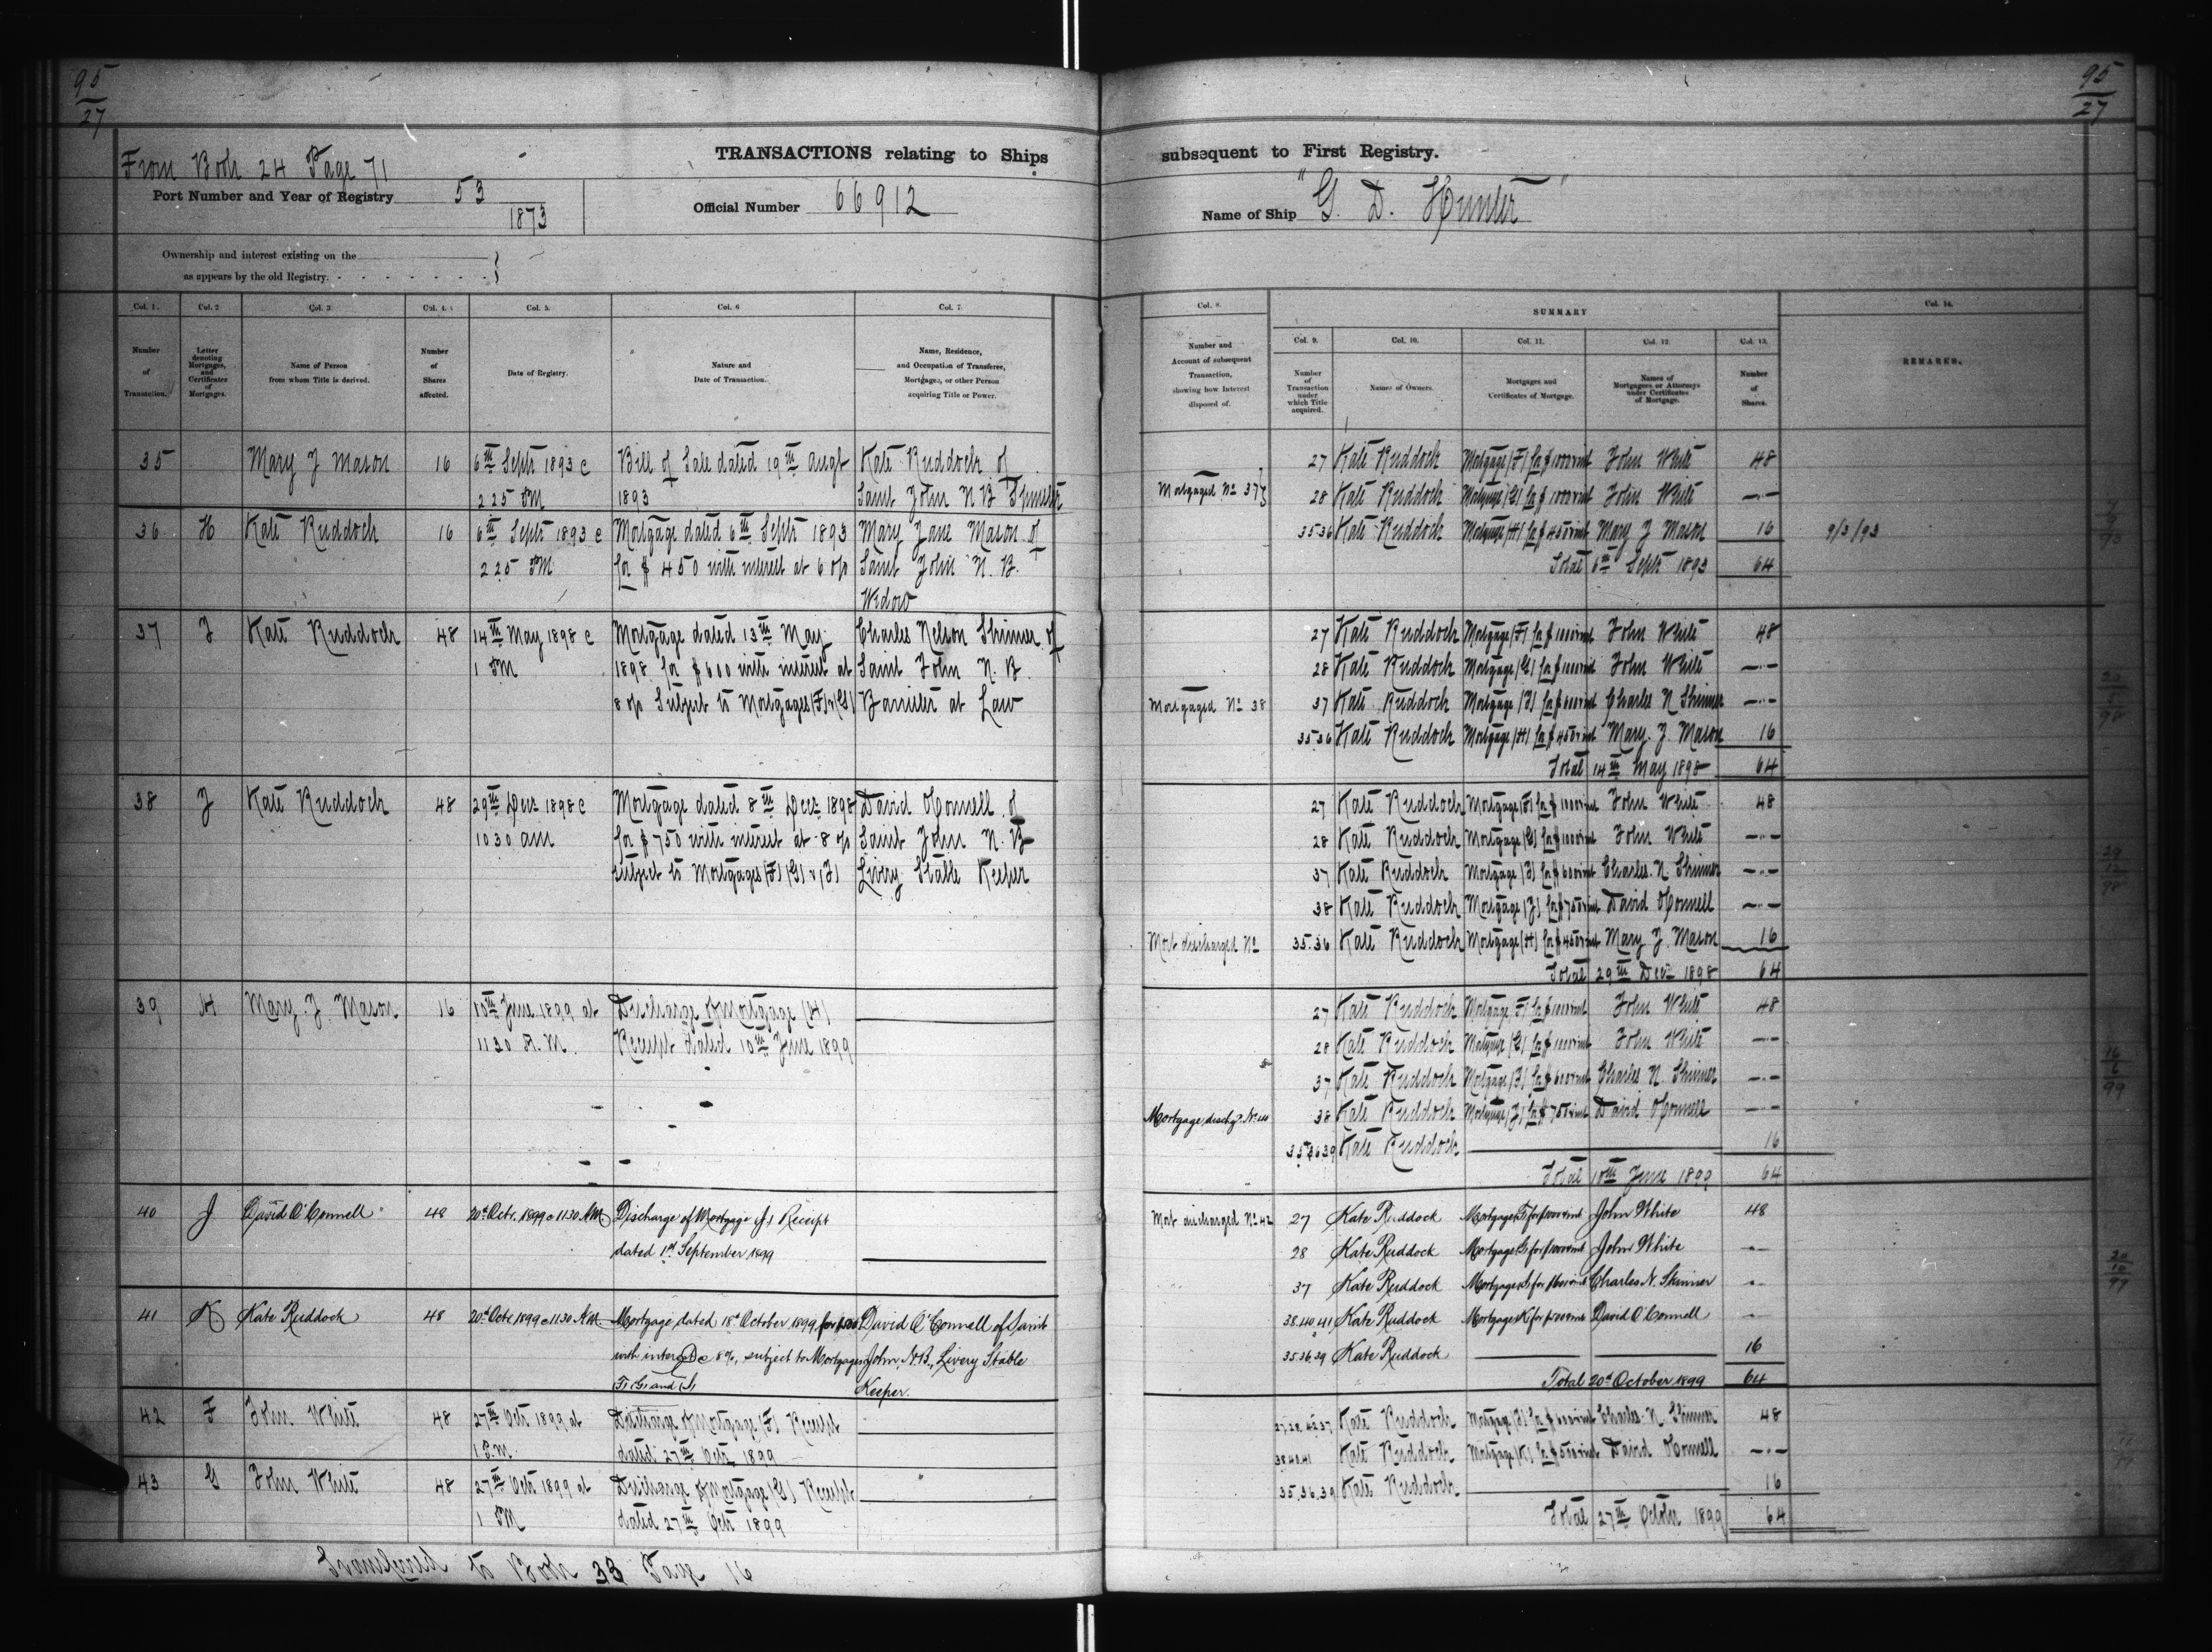 95
27
95
27
From Book 24 Page 71
TRANSACTIONS relating to Ships subsequent to First Registry.
Port Number and Year of Registry 53
1873
Official Number 66912
Name of Ship "G. D. Hunter"
Ownership and interest existing on the
as appears by the old Registry.
Col. 1. Col. 2 Col. 3 Col. 4. Col. 5. Col. 6 Col. 7.
Number of Transaction.
Letter denoting Mortgages, and Certificates of Mortgages.
Name of Person from whom Title is derived.
Number of Shares affected.
Date of Registry.
Nature and Date of Transaction.
Name, Residence, and Occupation of Transferee, Mortgagee, or other Person acquiring Title or Power.
35 Mary J Mason 16 6th Septr 1893 @ Bill of Sale dated 19th Augt Kate Ruddock of
2 25 PM 1893 Saint John N B
36 H Kate Ruddock 16 6th Septr 1893 @ Mortgage dated 6th Septr 1893 Mary Jane Mason of
2 25 PM for $450 with interest at 6 o/o Saint John N. B.
Widow
37 I Kate Ruddock 48 14th May 1898 @ Mortgage dated 13th May Charles Nelson Skinner of
1 PM 1898 for $600 with interest at Saint John N. B.
8 o/o Subject to Mortgages (F) & (G) Barrister at Law
38 J Kate Ruddock 48 29th Decr 1898 @ Mortgage dated 8th Decr 1898 David OConnell of
10 30 am for $750 with interest at 8 o/o Saint John N. B
subject to Mortgages (F) (G) & (I) Livery Stable Keeper
39 H Mary. J. Mason 16 10th June 1899 at Discharge of Mortgage (H)
11 30 A. M. Receipt dated 10th June 1899
40 J David O'Connell 48 20th Octr. 1899 @ 11 30 AM Discharge of Mortgage (J) Receipt
dated 1st September 1899
41 K Kate Ruddock 48 20th Octr. 1899 @ 11 30 AM Mortgage dated 18th October 1899, for David O'Connell of Saint
with interest @ 8%, subject to Mortgages John, N.B., Livery Stable
F, G, and I Keeper.
42 F John White 48 27th Octr 1899 at Discharge of Mortgage (F) Receipt
1 P.M. dated 27th Octr 1899
43 G John White 48 27th Octr 1899 at Discharge of Mortgage (G) Receipt
1 PM dated 27th Octr 1899
Transferred to Book 33 Page 16
Col. 8. SUMMARY Col. 14.
Col. 9. Col. 10. Col. 11. Col. 12. Col. 13.
Number and Account of subsequent Transaction, showing how Interest disposed of.
Number of Transaction under which Title acquired.
Names of Owners.
Mortgages and Certificates of Mortgage.
Names of Mortgagees or Attorneys under Certificates of Mortgage.
Number of Shares.
REMARKS.
27 Kate Ruddock Mortgage (F) for $1000 & int John White 48
Mortgaged No 37 28 Kate Ruddock Mortgage (G) for $1000 & int John White —"—
35.36 Kate Ruddock Mortgage (H) for $450 & int Mary J Mason 16 9/3/93
Total 6th Septr 1893 64
27 Kate Ruddock Mortgage (F) for $1000 & int John White 48
28 Kate Ruddock Mortgage (G) for $1000 & int John White —"—
Mortgaged No 38 37 Kate Ruddock Mortgage (I) for $600 & int Charles N Skinner —"—
35.36 Kate Ruddock Mortgage (H) for $450 & int Mary. J. Mason 16
Total 14th May 1898 64
27 Kate Ruddock Mortgage (F) for $1000 & int John White 48
28 Kate Ruddock Mortgage (G) for $1000 & int John White —"—
37 Kate Ruddock Mortgage (I) for $600 & int Charles. N. Skinner —"—
38 Kate Ruddock Mortgage (J) for $750 & int David OConnell —"—
Mort discharged No 35.36 Kate Ruddock Mortgage (H) for $450 & int Mary J. Mason 16
Total 29th Decr 1898 64
27 Kate Ruddock Mortgage (F) for $1000 & int John White 48
28 Kate Ruddock Mortgage (G) for $1000 & int John White —"—
37 Kate Ruddock Mortgage (I) for $600 & int Charles N. Skinner —"—
Mortgage dischgd. No 38 Kate Ruddock Mortgage (J) for $750 & int David OConnell —"—
35.36.39 Kate Ruddock 16
Total 10th June 1899 64
Mort discharged No 42 27 Kate Ruddock Mortgage F for $1000 & int John White 48
28 Kate Ruddock Mortgage G for $1000 & int John White —"—
37 Kate Ruddock Mortgage I for $600 & int Charles N. Skinner "
38.40.41 Kate Ruddock Mortgage K for David O'Connell "
35.36.39 Kate Ruddock 16
Total 20th October 1899 64
27.28.42.37 Kate Ruddock Mortgage (I) for $600 & int Charles. N. Skinner 48
38.40.41 Kate Ruddock Mortgage (K) for David OConnell —"—
35.36.39 Kate Ruddock 16
Total 27th October 1899 64